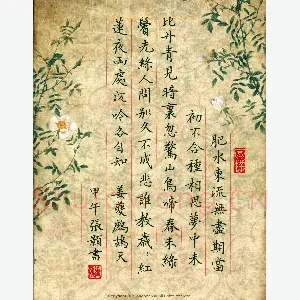 肥水東流無盡期當
初不合種相思夢中未
比丹青見暗裏忽驚山鳥啼春未綠
鬢先絲人間別久不成悲誰教歲〻紅
蓮夜兩處沉吟各自知 姜夔鷓鴣天
甲午張書